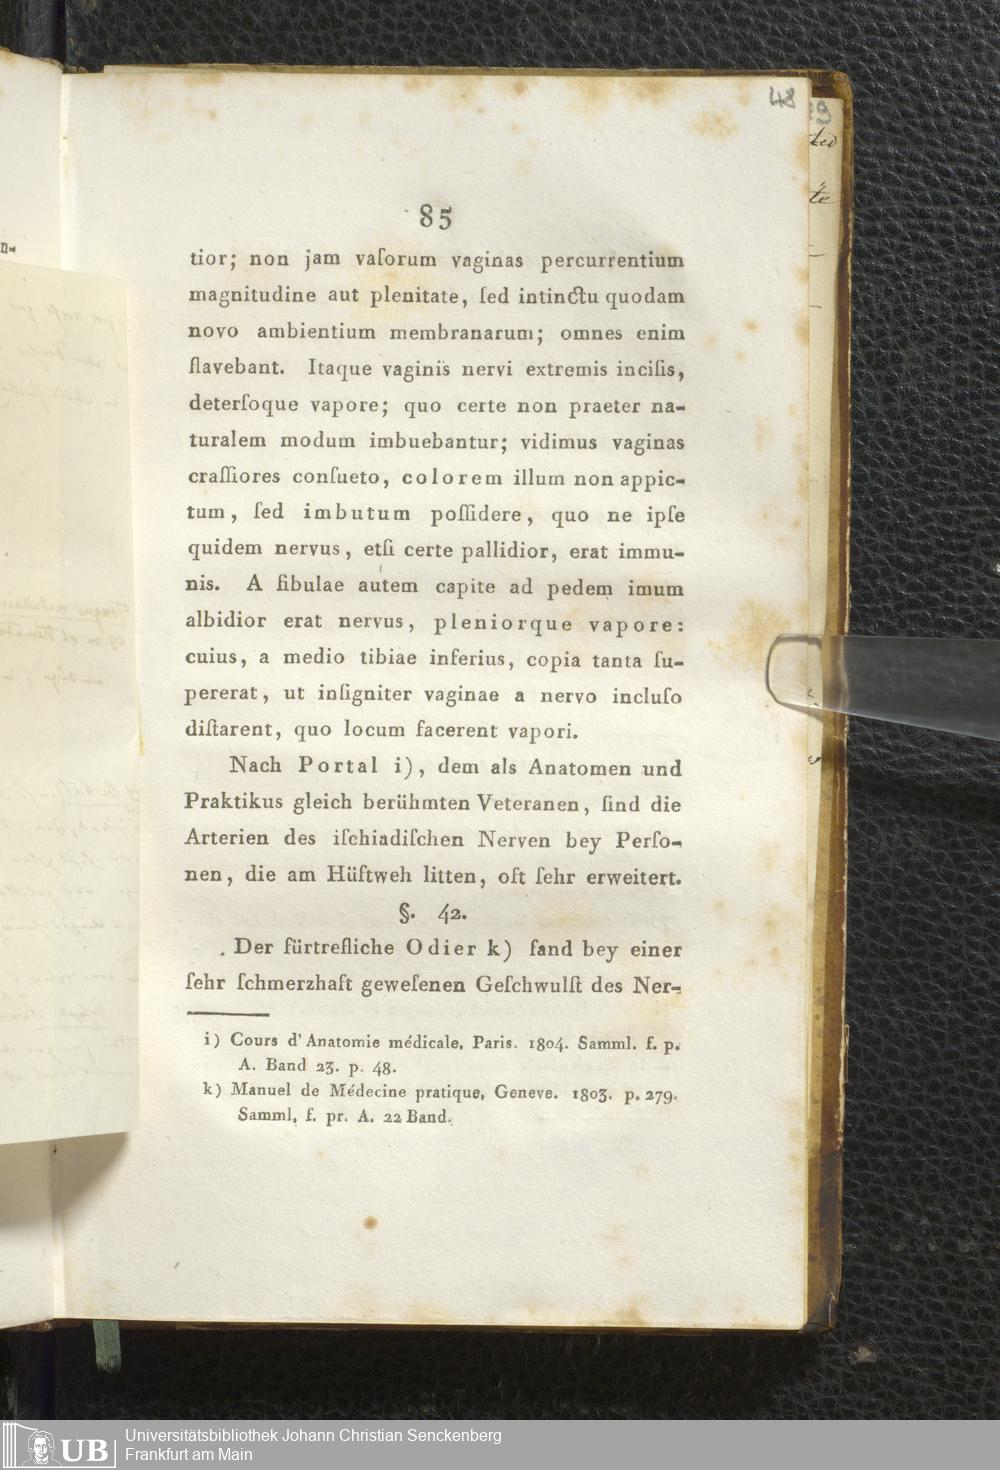 48
85
tior; non jam vaſorum vaginas percurrentium
magnitudine aut plenitate, ſed intinctu quodam
novo ambientium membranarum; omnes enim
flavebant. Itaque vaginis nervi extremis inciſis,
deterſoque vapore; quo certe non praeter na-
turalem modum imbuebantur; vidimus vaginas
craſſiores conſueto, colorem illum non appic-
tum, ſed imbutum poſſidere, quo ne ipſe
quidem nervus, etſi certe pallidior, erat immu-
nis. A fibulae autem capite ad pedem imum
albidior erat nervus, pleniorque vapore:
cuius, a medio tibiae inferius, copia tanta ſu-
pererat, ut inſigniter vaginae a nervo incluſo
diſtarent, quo locum facerent vapori.
Nach Portal i), dem als Anatomen und
Praktikus gleich berühmten Veteranen, ſind die
Arterien des iſchiadiſchen Nerven bey Perſo-
nen, die am Hüftweh litten, oft ſehr erweitert.
§. 42.
Der fürtrefliche Odier k) fand bey einer
ſehr ſchmerzhaft geweſenen Geſchwulſt des Ner-
i) Cours d'Anatomie médicale, Paris. 1804. Samml. f. p.
A. Band 23. p. 48.
k) Manuel de Médecine pratique, Geneve. 1803. p. 279.
Samml. f. pr. A. 22 Band.
UB
Universitätsbibliothek Johann Christian Senckenberg
Frankfurt am Main